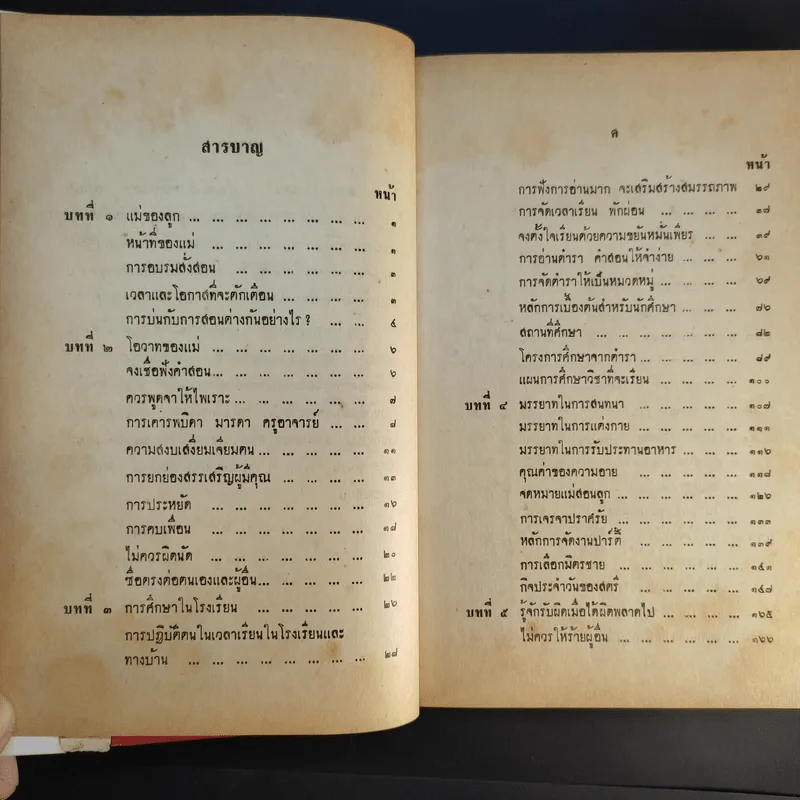 สารบาญ
หน้า
บทที่ ๑ แม่ของลูก ... ... ... ... ... ... ... ... ๑
หน้าที่ของแม่ ... ... ... ... ... ... ๑
การอบรมสั่งสอน ... ... ... ... ... ... ๓
เวลาและโอกาสที่จะตักเตือน ... ... ... ... ๓
การบ่นกับการสอนต่างกันอย่างไร ? ... ... ๕
บทที่ ๒ โอวาทของแม่ ... ... ... ... ... ... ... ๖
จงเชื่อฟังคำสอน ... ... ... ... ... ... ... ๖
ควรพูดจาให้ไพเราะ ... ... ... ... ... ... ๗
การเคารพบิดา มารดา ครูอาจารย์ ... ... ๘
ความสงบเสงี่ยมเจียมตน ... ... ... ... ... ๑๑
การยกย่องสรรเสริญผู้มีคุณ ... ... ... ... ๑๓
การประหยัด ... ... ... ... ... ... ... ๑๖
การคบเพื่อน ... ... ... ... ... ... ... ๑๘
ไม่ควรผิดนัด ... ... ... ... ... ... ... ๒๐
ซื่อตรงต่อตนเองและผู้อื่น ... ... ... ... ... ๒๒
บทที่ ๓ การศึกษาในโรงเรียน ... ... ... ... ... ๒๖
การปฏิบัติตนในเวลาเรียนในโรงเรียนและ
ทางบ้าน ... ... ... ... ... ... ... ... ๒๘
ค
หน้า
การฟังการอ่านมาก จะเสริมสร้างสมรรถภาพ ๒๙
การจัดเวลาเรียน พักผ่อน ... ... ... ... ๓๗
จงตั้งใจเรียนด้วยความขยันหมั่นเพียร ... ... ๓๙
การอ่านตำรา คำสอนให้จำง่าย ... ... ... ๖๑
การจัดตำราให้เป็นหมวดหมู่ ... ... ... ... ๖๙
หลักการเบื้องต้นสำหรับนักศึกษา ... ... ... ๗๖
สถานที่ศึกษา ... ... ... ... ... ... ... ๘๒
โครงการศึกษาจากตำรา ... ... ... ... ... ๘๙
แผนการศึกษาวิชาที่จะเรียน ... ... ... ... ๑๐๐
บทที่ ๔ มรรยาทในการสนทนา ... ... ... ... ... ๑๐๗
มรรยาทในการแต่งกาย ... ... ... ... ... ๑๑๑
มรรยาทในการรับประทานอาหาร ... ... ... ๑๑๖
คุณค่าของความอาย ... ... ... ... ... ๑๑๘
จดหมายแม่สอนลูก ... ... ... ... ... ... ๑๒๖
การเจรจาปราศรัย ... ... ... ... ... ... ๑๓๓
หลักการจัดงานปาร์ตี้ ... ... ... ... ... ๑๓๙
การเลือกมิตรชาย ... ... ... ... ... ... ๑๔๑
กิจประจำวันของสตรี ... ... ... ... ... ๑๔๗
บทที่ ๕ รู้จักรับผิดเมื่อได้ผิดพลาดไป ... ... ... ... ๑๖๕
ไม่ควรให้ร้ายผู้อื่น ... ... ... ... ... ... ๑๖๖